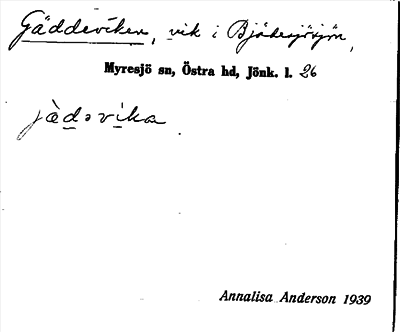 Gäddeviken, vik i Bjädesjösjön,
Myresjö sn, Östra hd, Jönk. l. 26
jàdəvika
Annalisa Anderson 1939